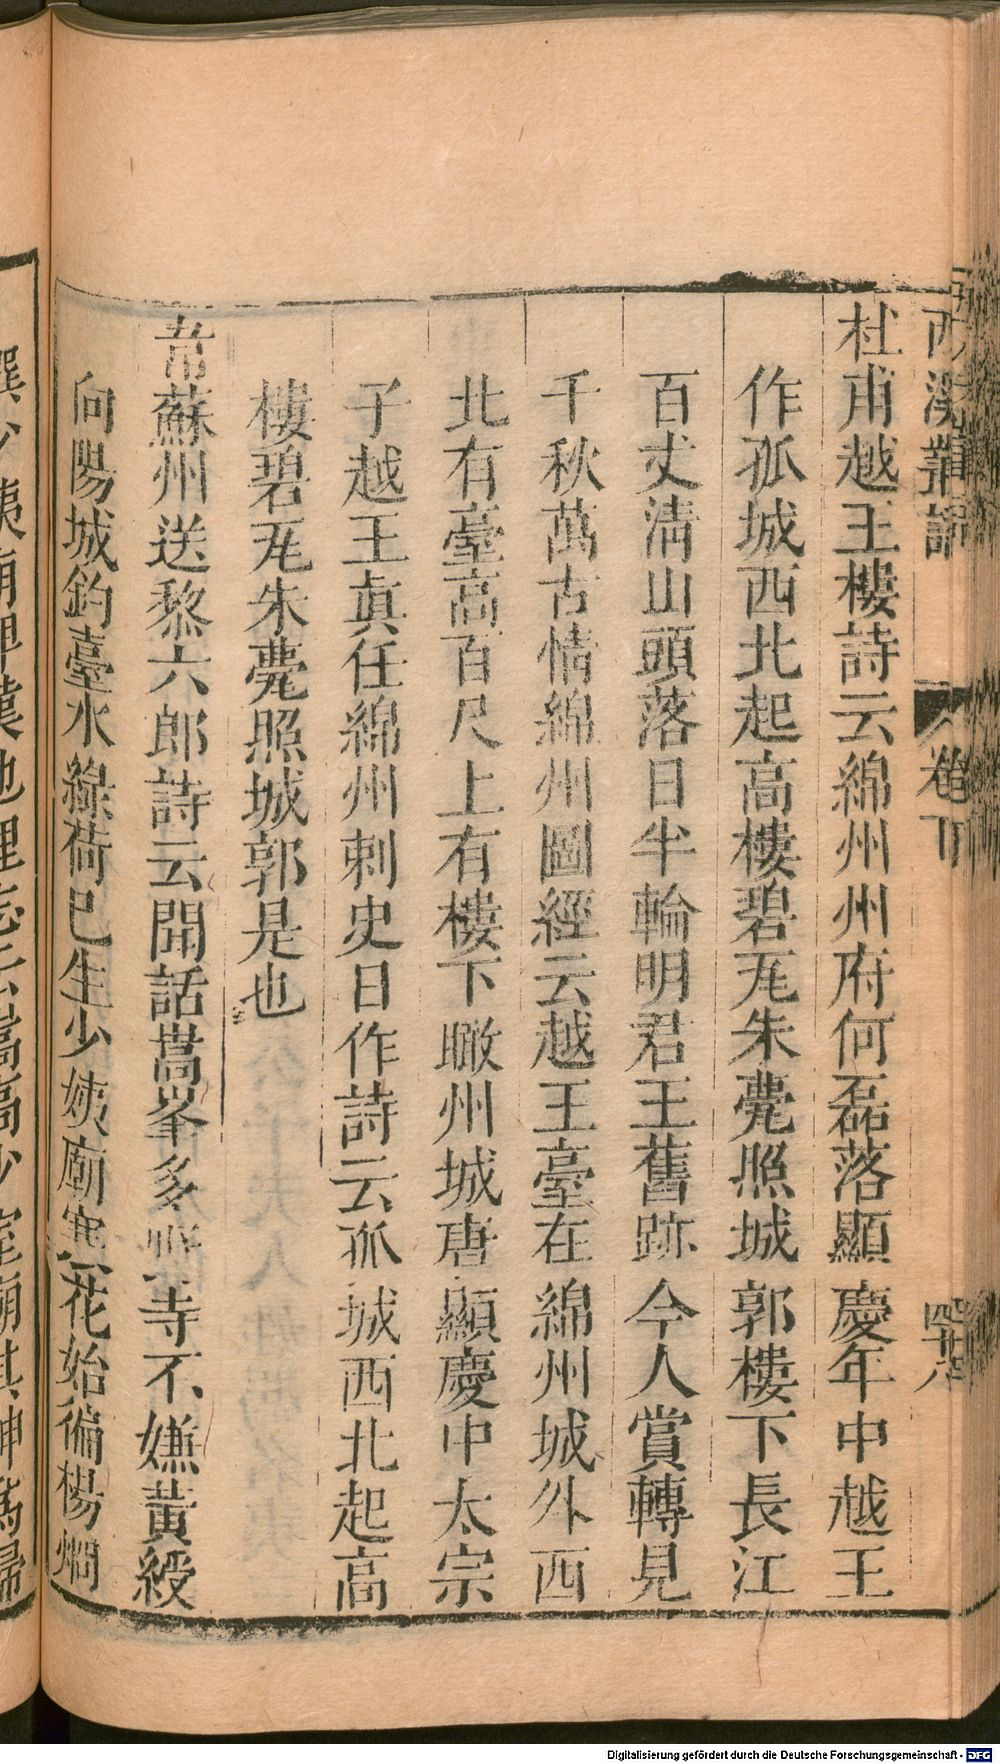 西溪叢語
卷下
杜甫越王樓詩云綿州州府何磊落顯慶年中越王
作孤城西北起高樓碧瓦朱甍照城郭樓下長江
百丈淸山頭落日半輪明君王舊跡今人賞轉見
千秋萬古情綿州圖經云越王臺在綿州城外西
北有臺高百尺上有樓下瞰州城唐顯慶中太宗
子越王眞任綿州刺史日作詩云孤城西北起高
樓碧瓦朱甍照城郭是也
韋蘇州送黎六郎詩云聞話嵩峯多野寺不嫌黃綬
向陽城鈞臺水綠荷已生少姨廟寒花始徧楊烱
撰少姨廟碑漢地理志云嵩高少室廟其神爲婦
Digitalisierung gefördert durch die Deutsche Forschungsgemeinschaft - DFG